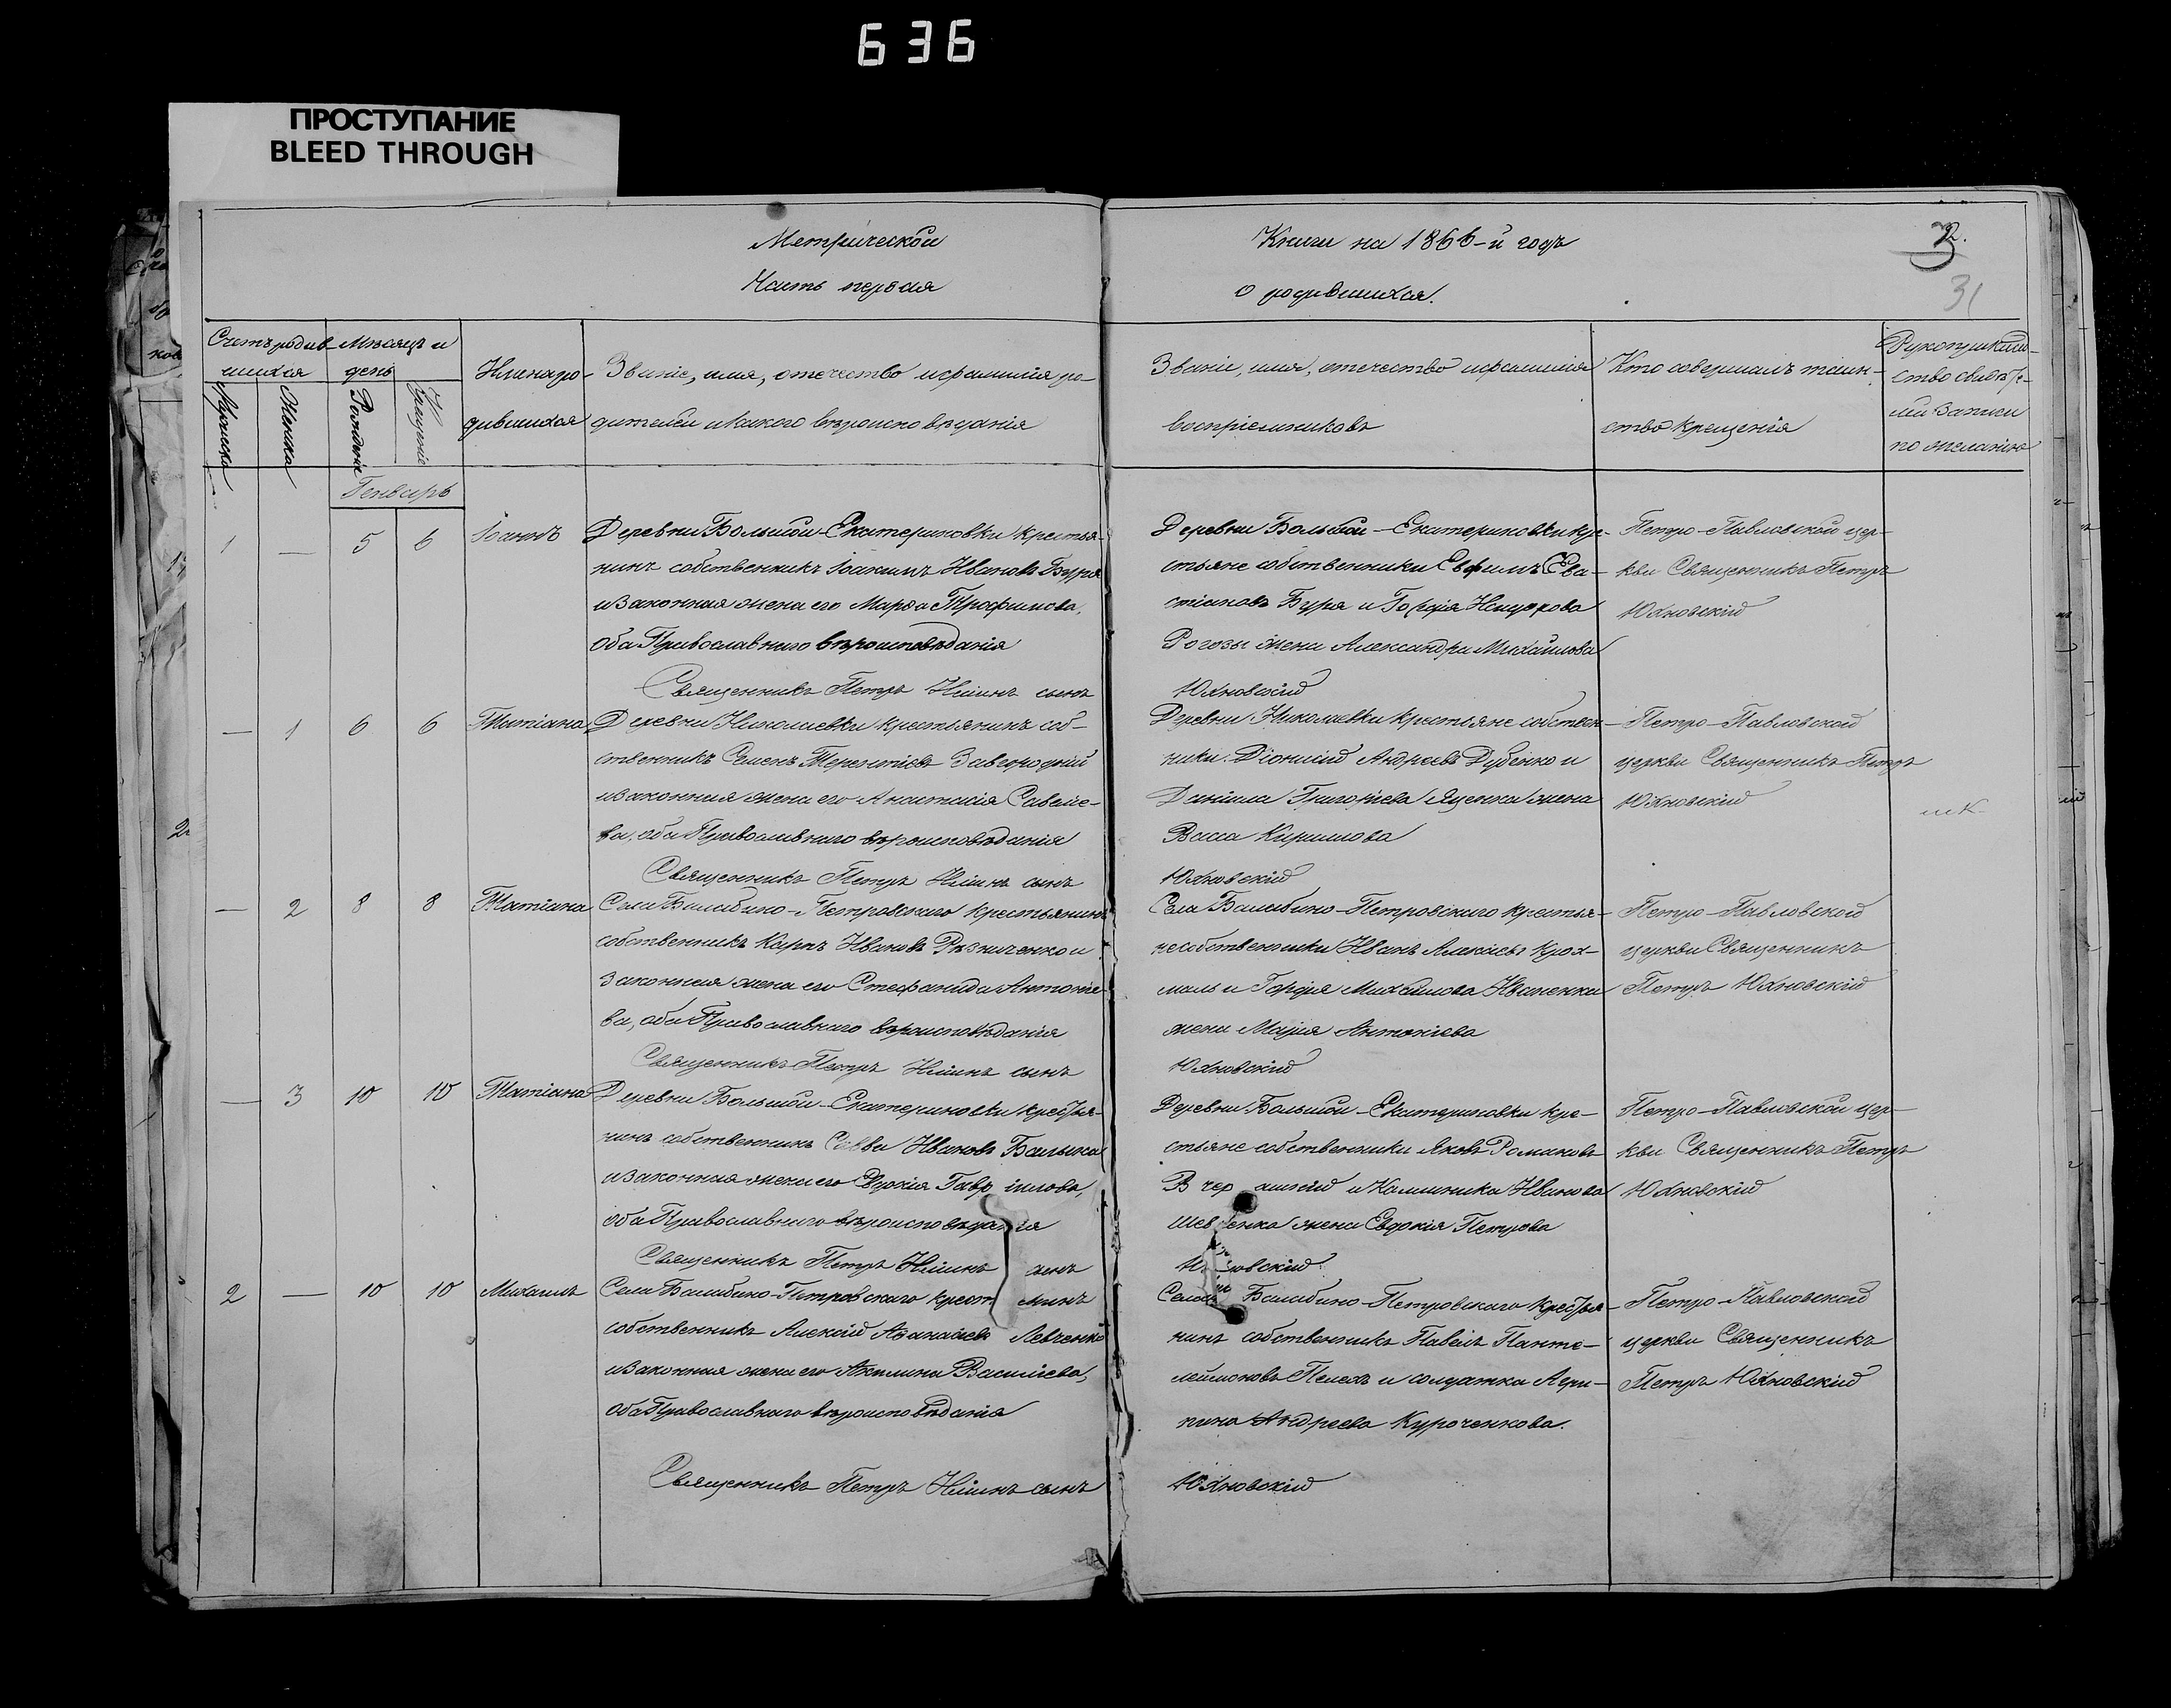 636
ПРОСТУПАНИЕ
BLEED THROUGH
Метрической
Часть первая
Книги на 1866-й годъ
о родившихся.
31
Счетъ родив-
шихся
Мужеска
Женска
Мѣсяцъ и
день
Рожденіе
Крещеніе
Имена ро-
дившихся
Званіе, имя, отчество и фамилія ро-
дителей и какого вѣроисповѣданія
Званіе, имя, отчество и фамилія
воспріемниковъ
Кто совершалъ таин-
ство крещенія
Рукоприклад-
ство свидѣте-
лей записи
по желанію
Генварь
1 — 5 6 Іоаннъ
Деревни Большой-Екатериновки крестья-
нинъ собственникъ Іоакимъ Ивановъ Буря
и законная жена его Марѳа Трофимова,
оба Православнаго вѣроисповѣданія
Священникъ Петръ Іліинъ сынъ
Деревни Большой-Екатериновки кре-
стьяне собственники Евфимъ Ева-
стіановъ Буря и Гордія
Рогозы жена Александра Михайлова
Юхновскій
Петро-Павловской цер-
кви Священникъ Петръ
Юхновскій
— 1 6 6 Татіана
Деревни Николаевки крестьянинъ соб-
ственникъ Семенъ Терентіевъ Завгородній
и законная жена его Анастасія Савеліе-
ва, оба Православнаго вѣроисповѣданія
Священникъ Петръ Іліинъ сынъ
Деревни Николаевки крестьяне собствен-
ники: Діонисій Андреевъ Дубенко и
Даніила Григоріева Яценка жена
Васса Кирилова
Юхновскій
Петро-Павловской
церкви Священникъ Петръ
Юхновскій
— 2 8 8 Татіана
Села Балабино-Петровскаго крестьянинъ
собственникъ Карпъ Ивановъ Рѣзниченко и
законная жена его Стефанида Антоніе-
ва, оба Православнаго вѣроисповѣданія
Священникъ Петръ Іліинъ сынъ
Села Балабино-Петровскаго крестья-
не собственники Иванъ Алексѣевъ Крох-
маль и Гордія Михайлова Иваненка
жена Марія Антоніева
Юхновскій
Петро-Павловской
церкви Священникъ
Петръ Юхновскій
— 3 10 10 Татіана
Деревни Большой-Екатериновки крестья-
нинъ собственникъ Савва Ивановъ Балыка
и законная жена его Евдокія Гавріилова,
оба Православнаго вѣроисповѣданія
Священникъ Петръ Іліинъ сынъ
Деревни Большой-Екатериновки кре-
стьяне собственники Яковъ Романовъ
и Калиника Иванова
Шевченка жена Евдокія Петрова
Юхновскій
Петро-Павловской цер-
кви Священникъ Петръ
Юхновскій
2 — 10 10 Михаилъ
Села Балабино-Петровскаго крестьянинъ
собственникъ Алексій Аѳанасіевъ Левченко
и законная жена его Акилина Василіева,
оба Православнаго вѣроисповѣданія
Священникъ Петръ Іліинъ сынъ
Села Балабино-Петровскаго крестья-
нинъ собственникъ Павелъ Панте-
леимоновъ Пелехъ и солдатка Агри-
пина Андреева Куроченкова.
Юхновскій
Петро-Павловской
церкви Священникъ
Петръ Юхновскій